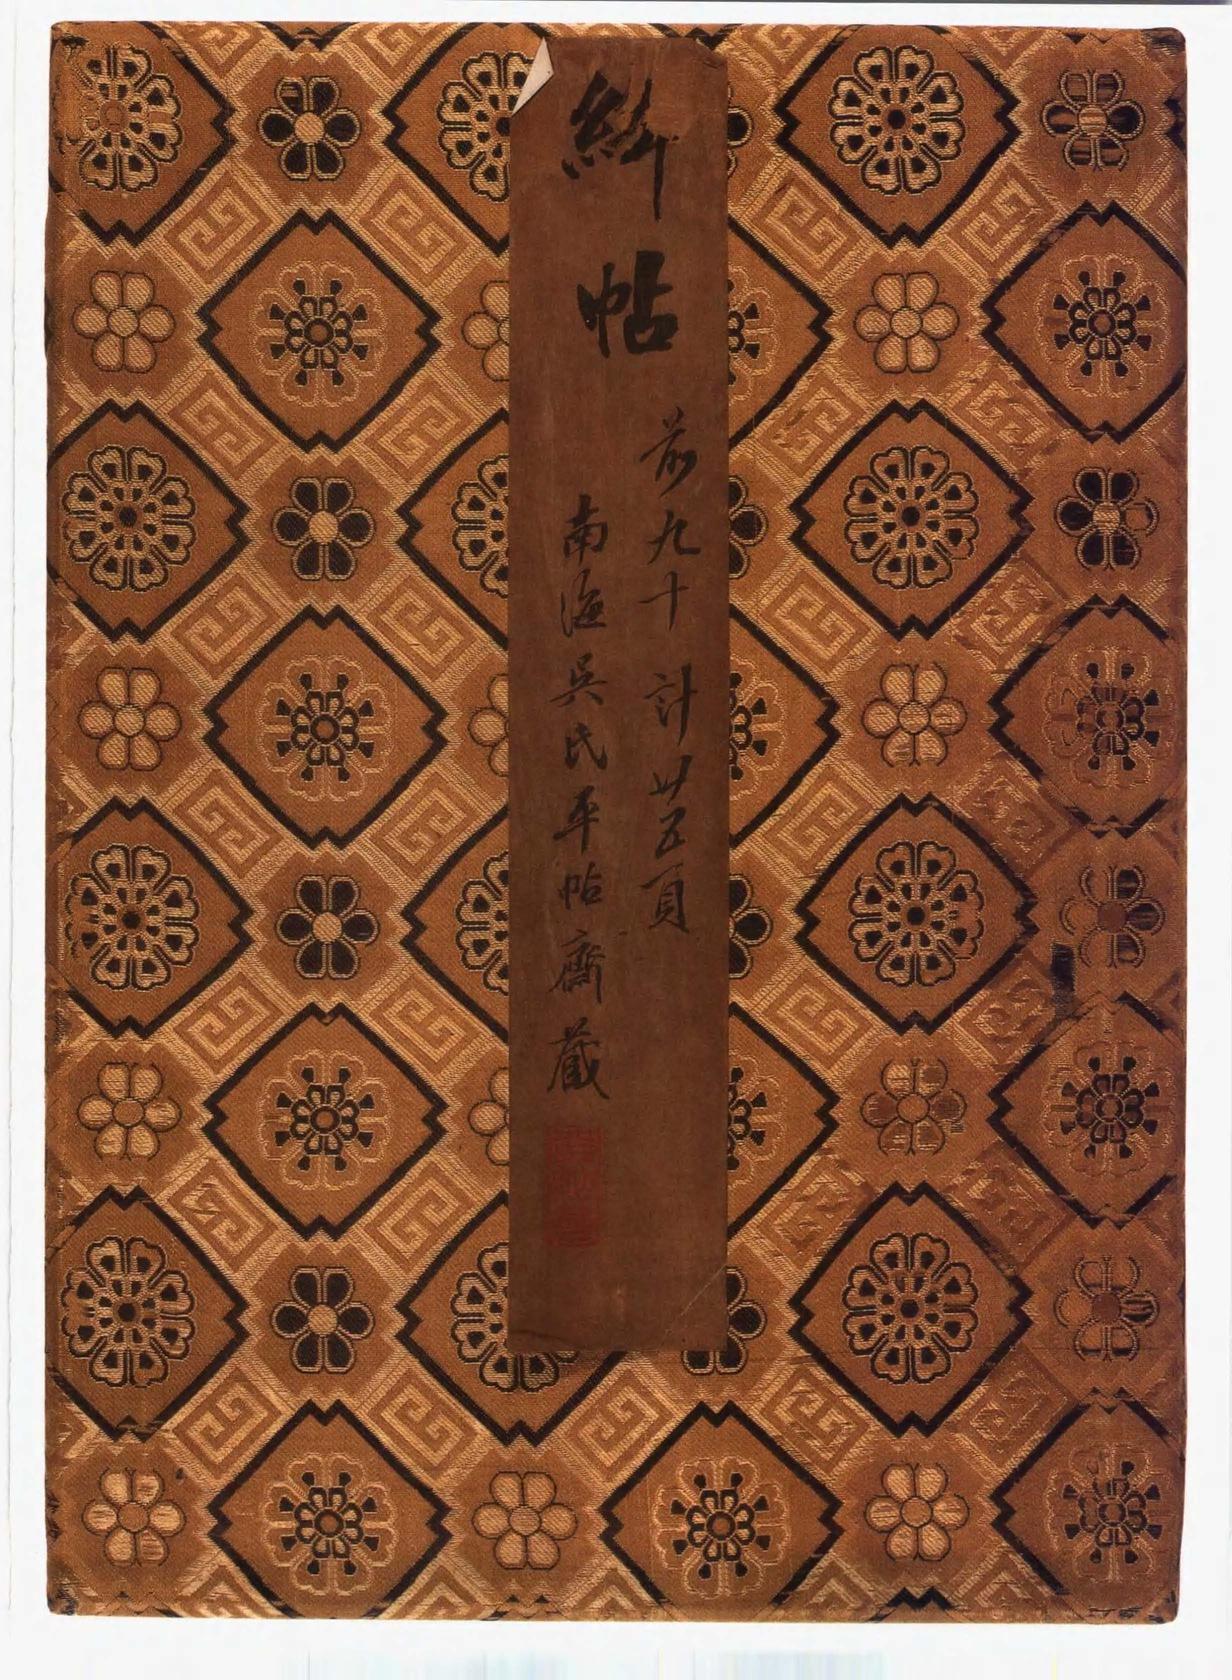 絳帖
前九十 計廿五頁
南海吳氏平帖齋藏